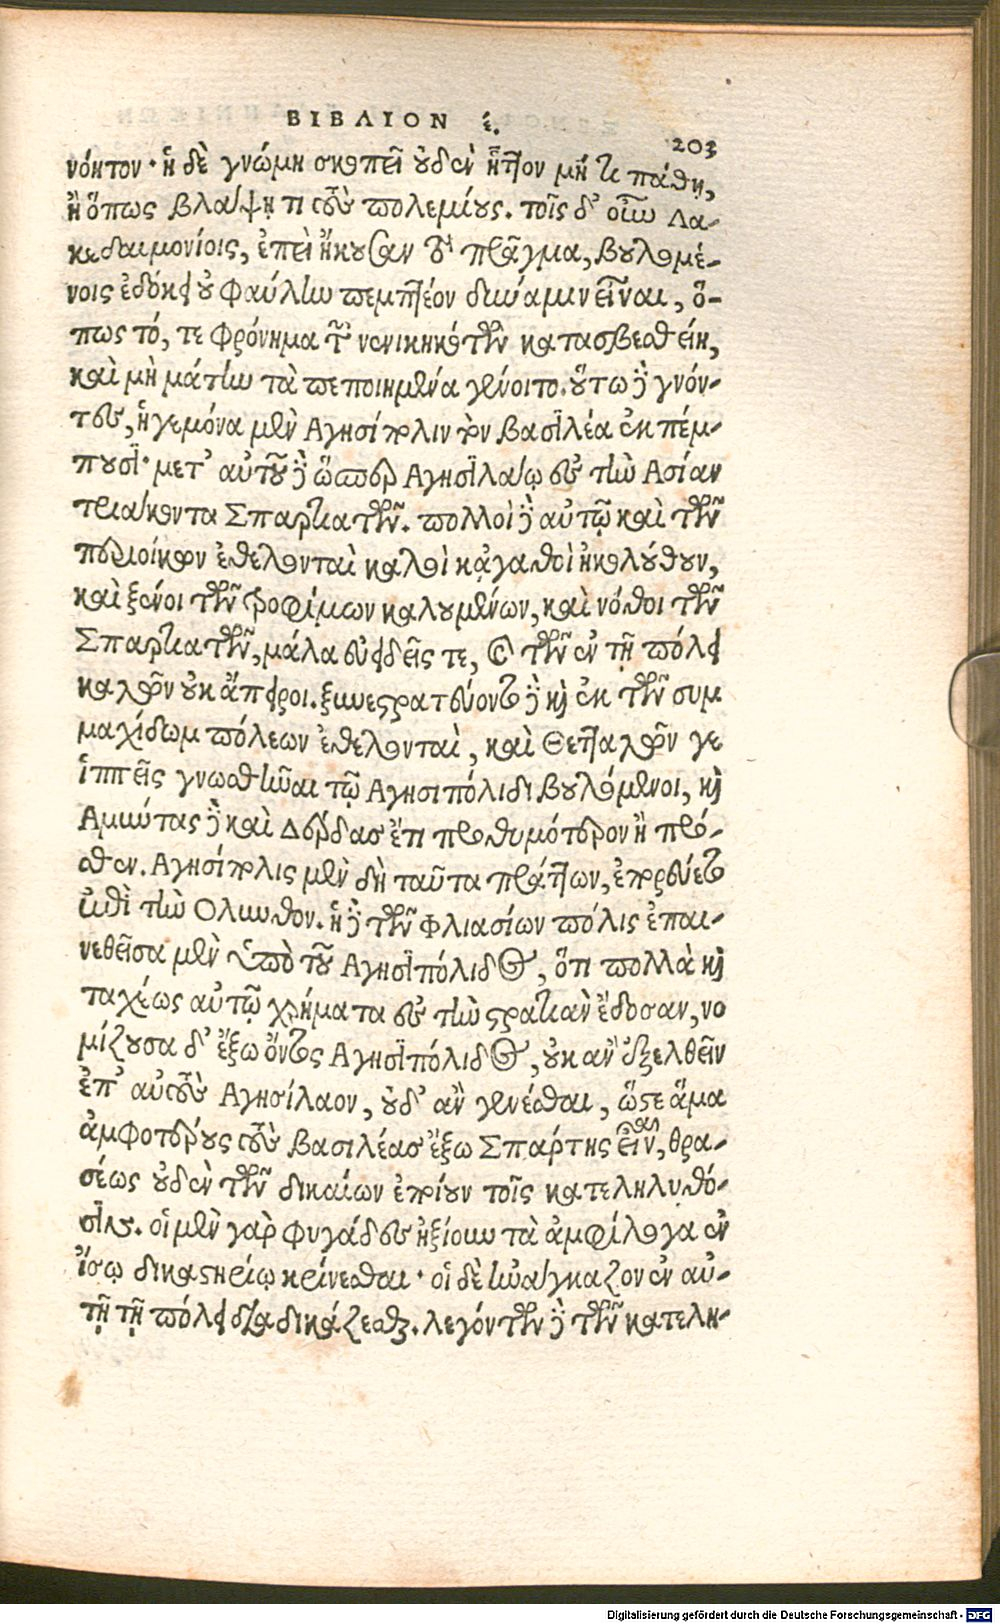 ΒΙΒΛΙΟΝ ἑ.
203
νόητον· ἡ δὲ γνώμη σκοπεῖ οὐδὲν ἧττον μή τι πάθῃ,
ἢ ὅπως βλάψῃ τι τοὺς πολεμίους. τοῖς δ' οὖν Λα-
κεδαιμονίοις, ἐπεὶ ἤκουσαν τὸ πρᾶγμα, βουλομέ-
νοις ἐδόκει οὐ φαύλην πεμπτέον δύναμιν εἶναι, ὅ-
πως τό, τε φρόνημα τῶν νενικηκότων κατασβεσθείη,
καὶ μὴ μάτην τὰ πεποιημένα γένοιτο. οὕτω δὲ γνόν-
τες, ἡγεμόνα μὲν Αγησίπολιν τὸν βασιλέα ἐκπέμ-
πουσι· μετ' αὐτοῦ δὲ ὥσπερ Αγησιλάῳ εἰς τὴν Ασίαν
τριάκοντα Σπαρτιατῶν. πολλοὶ δὲ αὐτῷ καὶ τῶν
περιοίκων ἐθελονταὶ καλοὶ κᾀγαθοὶ ἠκολούθουν,
καὶ ξένοι τῶν τροφίμων καλουμένων, καὶ νόθοι τῶν
Σπαρτιατῶν, μάλα εὐειδεῖς τε, καὶ τῶν ἐν τῇ πόλει
καλῶν οὐκ ἄπειροι. ξυνεστρατεύοντο δὲ καὶ ἐκ τῶν συμ
μαχίδωμ πόλεων ἐθελονταὶ, καὶ Θετταλῶν γε
ἱππεῖς γνωσθῆναι τῷ Αγησιπόλιδι βουλόμενοι, καὶ
Αμύντας δὲ καὶ Δέρδας ἔτι προθυμότερον ἢ πρό-
σθεν. Αγησίπολις μὲν δὴ ταῦτα πράττων, ἐπορεύετο
ἐπὶ τὴν Ολυνθον. ἡ δὲ τῶν Φλιασίων πόλις ἐπαι-
νεθεῖσα μὲν ὑπὸ τοῦ Αγησιπόλιδος, ὅτι πολλὰ καὶ
ταχέως αὐτῷ χρήματα εἰς τὴν στρατιὰν ἔδοσαν, νο
μίζουσα δ' ἔξω ὄντος Αγησιπόλιδος, οὐκ ἂν ἐξελθεῖν
ἐπ' αὐτοὺς Αγησίλαον, οὐδ' ἂν γενέσθαι, ὥστε ἅμα
ἀμφοτέρους τοὺς βασιλέας ἔξω Σπάρτης εἶναι, θρα-
σέως οὐδὲν τῶν δικαίων ἐποίουν τοῖς κατεληλυθό-
σιν. οἱ μὲν γὰρ φυγάδες ἠξίουν τὰ ἀμφίλογα ἐν
ἴσῳ δικαστηρίῳ κρίνεσθαι· οἱ δὲ ἠνάγκαζον ἐν αὐ-
τῇ τῇ πόλει διαδικάζεσθαι. λεγόντων δὲ τῶν κατελη-
Digitalisierung gefördert durch die Deutsche Forschungsgemeinschaft - DFG